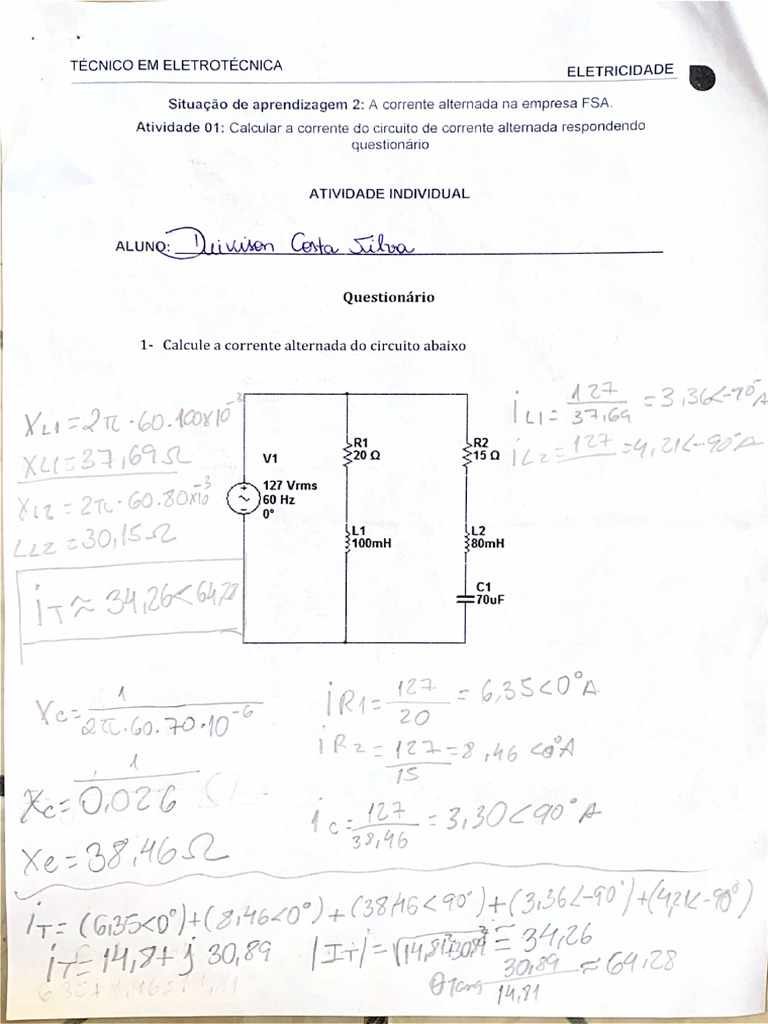 TÉCNICO EM ELETROTÉCNICA
ELETRICIDADE
Situação de aprendizagem 2: A corrente alternada na empresa FSA.
Atividade 01: Calcular a corrente do circuito de corrente alternada respondendo
questionário
ATIVIDADE INDIVIDUAL
ALUNO: Deivison Costa Silva
Questionário
1- Calcule a corrente alternada do circuito abaixo
XL1 = 2π · 60 · 100x10⁻³
XL1 = 37,69 Ω
XL2 = 2π · 60 · 80x10⁻³
LL2 = 30,15 Ω
iT ≈ 34,26 < 64,28
V1
127 Vrms
60 Hz
0°
R1
20 Ω
L1
100mH
R2
15 Ω
L2
80mH
C1
70uF
iL1 = 127/37,69 = 3,36 <-90° A
iL2 = 127 = 4,21 <-90° A
Xc = 1/2π·60·70·10⁻⁶
Xc = 1/0,026
Xc = 38,46 Ω
iR1 = 127/20 = 6,35 <0° A
iR2 = 127/15 = 8,46 <0° A
ic = 127/38,46 = 3,30 < 90° A
iT = (6,35<0°)+(8,46<0°)+(38,46<90°)+(3,36<-90°)+(4,21<-90°)
iT = 14,8 + j 30,89 |IT| = √14,81²+30,89² = 34,26
θ Tang 30,89/14,81 ≈ 64,28